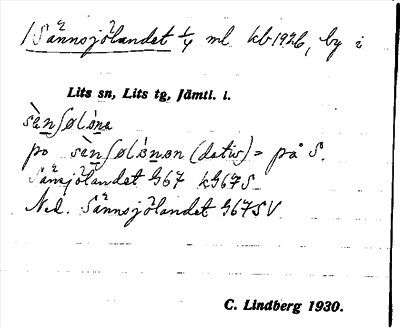 1 Sännsjölandet 1/4 ml kb 1926, by i
Lits sn, Lits tg, Jämtl. l.
sànʃøləne
po sànʃølənən (dativ) = på S.
Sännsjölandet G67 kG67S
Ned. Sännsjölandet G67SV
C. Lindberg 1930.